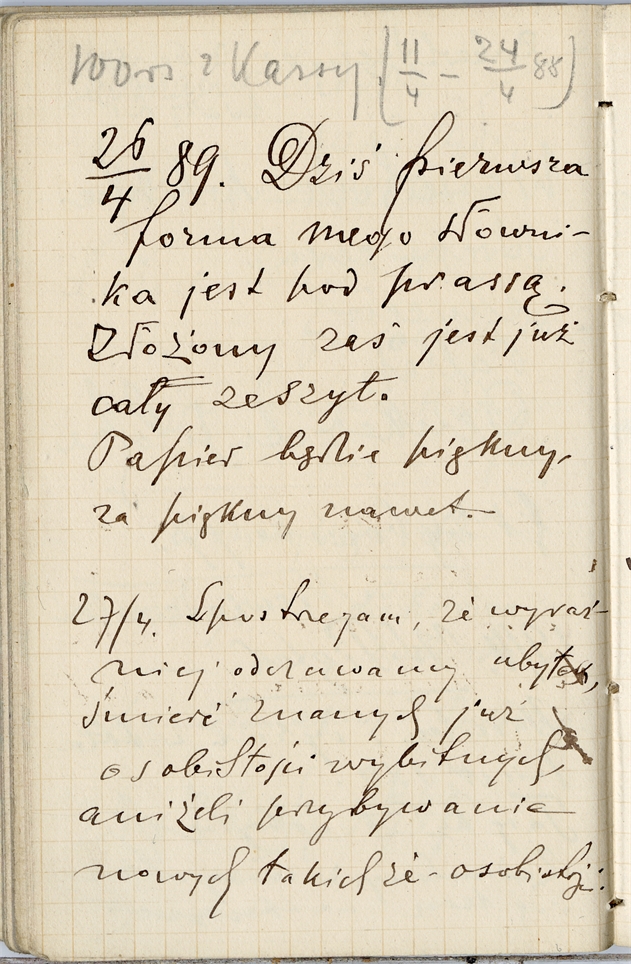 100 rs z Kassy (11/4 – 24/4 88)
26/4 89. Dziś pierwsza
forma mego słowni-
ka jest pod prassą.
Złożony zaś jest już
cały zeszyt.
Papier będzie piękny,
za piękny nawet.
27/4. Spostrzegam, że wyraź-
niej odczuwamy ubytek,
śmierć znanych już
osobistości wybitnych,
aniżeli przybywanie
nowych takichże osobistości.